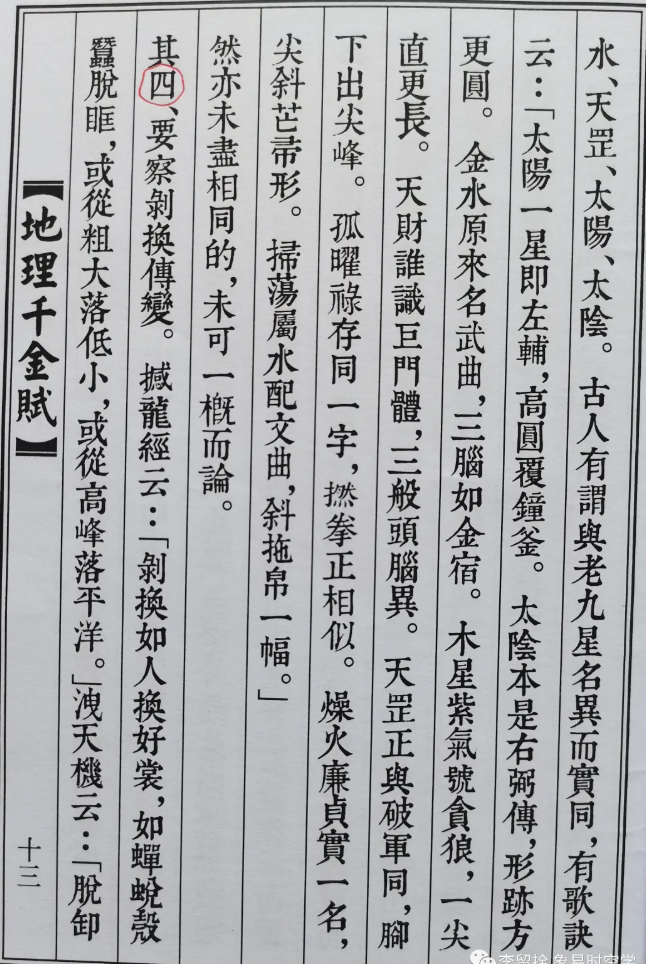 水、天罡、太陽、太陰。古人有謂與老九星名異而實同，有歌訣
云：「太陽一星即左輔，高圓覆鐘釜。太陰本是右弼傳，形跡方
更圓。金水原來名武曲，三腦如金宿。木星紫氣號貪狼，一尖
直更長。天財誰識巨門體，三般頭腦異。天罡正與破軍同，腳
下出尖峰。孤曜祿存同一字，撚拳正相似。燥火廉貞實一名，
尖斜芒帚形。掃蕩屬水配文曲，斜拖帛一幅。」
然亦未盡相同的，未可一概而論。
其四、要察剝換傳變。撼龍經云：「剝換如人換好裳，如蟬蛻殼
蠶脫眶，或從粗大落低小，或從高峰落平洋。」洩天機云：「脫卸
【地理千金賦】
十三
李留拴 象易时空学